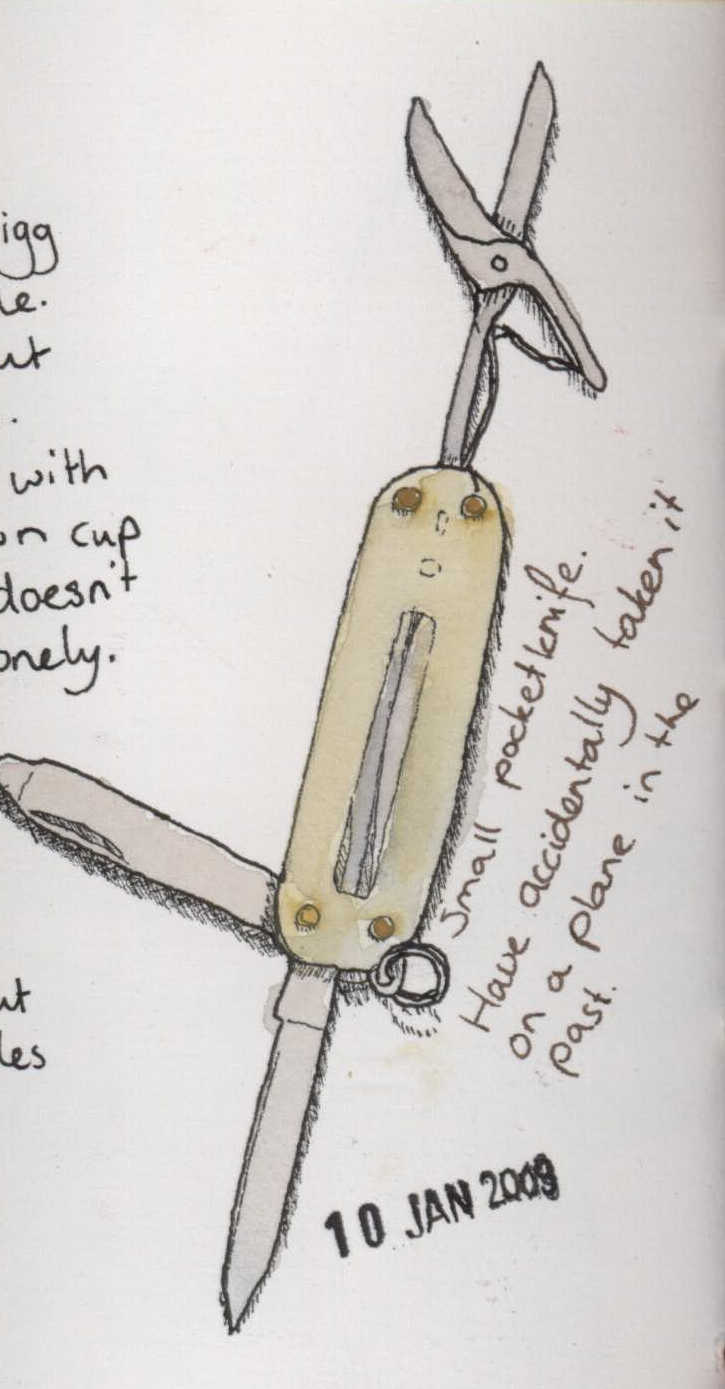 igg
le.
ut
with
on cup
doesn't
onely.
ut
les
Small pocketknife.
Have accidentally taken it
on a plane in the
past.
10 JAN 2009